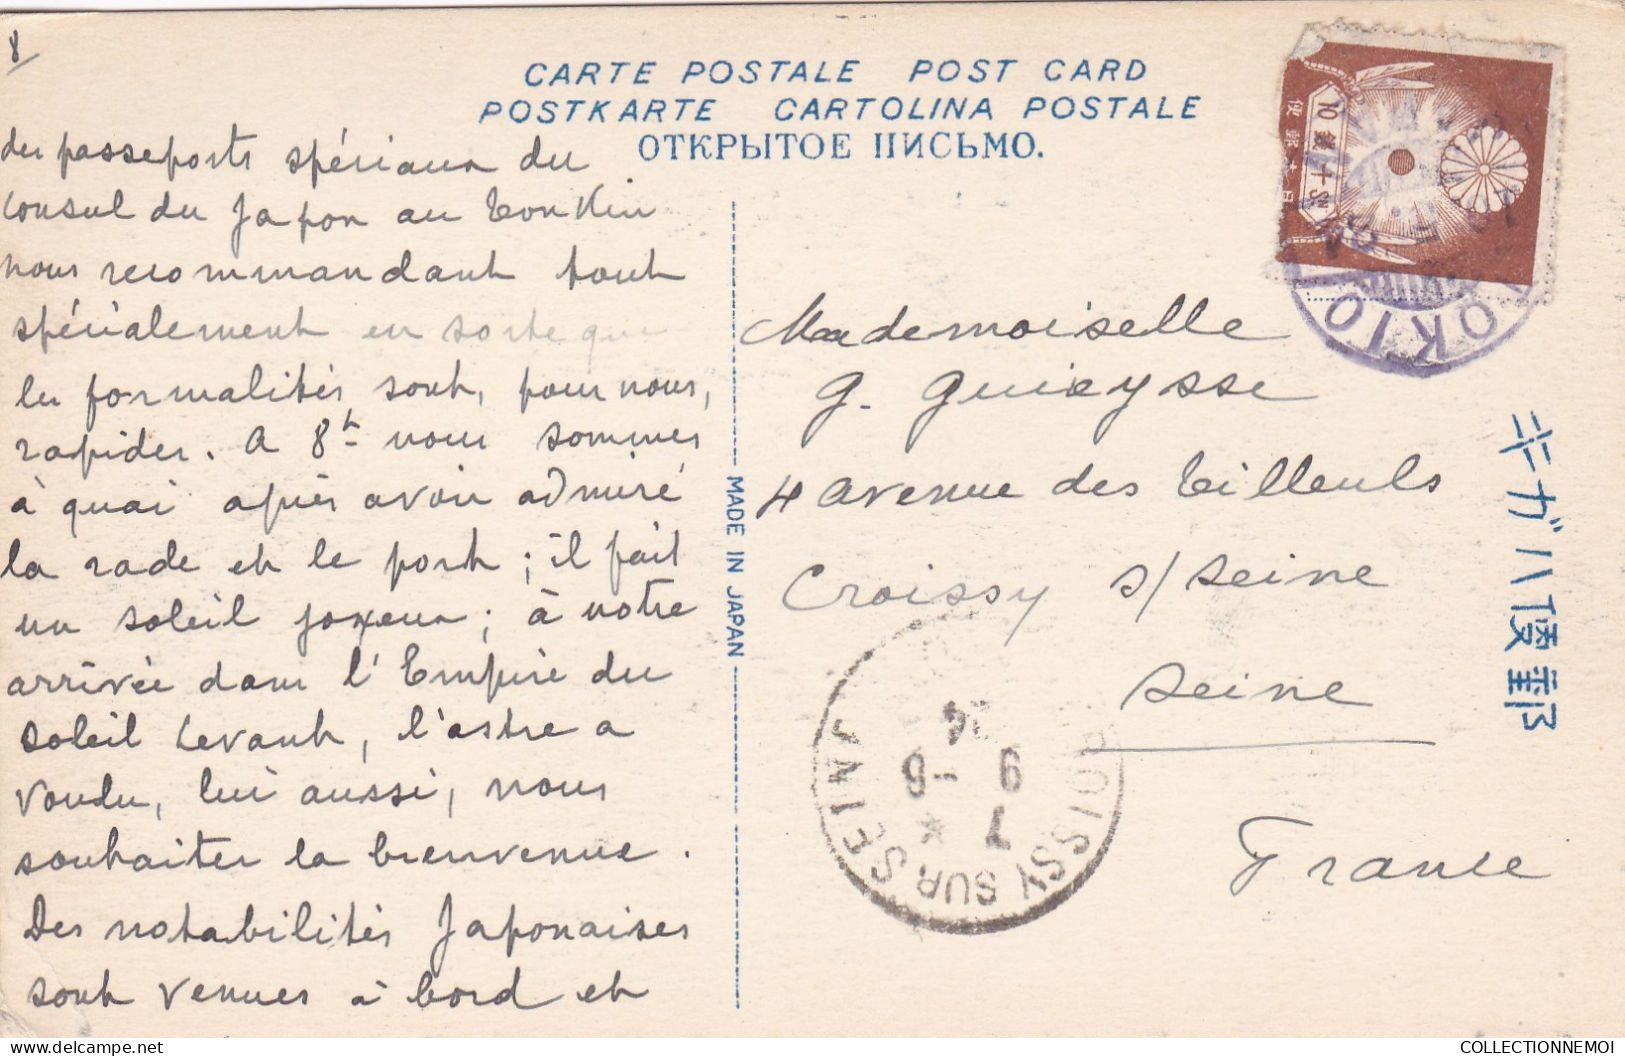 8/
CARTE POSTALE POST CARD
POSTKARTE CARTOLINA POSTALE
ОТКРЫТОЕ ПИСЬМО.
des passeports spéciaux du
Consul du Japon au Tonkin
nous recommandant tout
spécialement en sorte que
les formalités sont, pour nous,
rapides. A 8h nous sommes
à quai après avoir admiré
la rade et le port ; il fait
un soleil joyeux ; à notre
arrivée dans l'Empire du
Soleil Levant, l'astre a
voulu, lui aussi, nous
souhaiter la bienvenue.
Des notabilités Japonaises
sont venues à bord et
MADE IN JAPAN
TOKIO
Mademoiselle
G. Guieysse
4 avenue des Tilleuls
Croissy s/ Seine
Seine
France
キガハ便郵
CROISSY SUR SEINE
7 *
9 - 6
24
COLLECTIONNEMOI